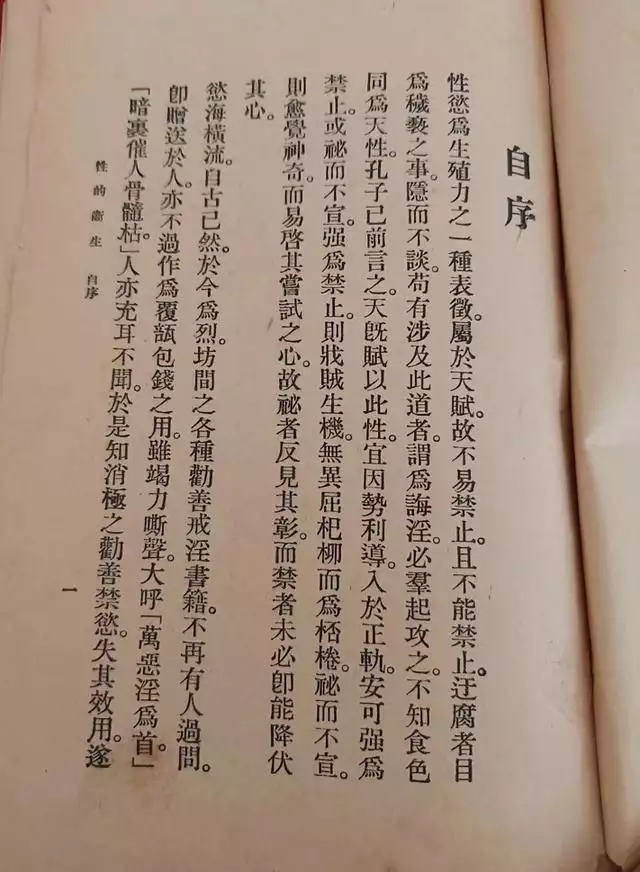 自序
性慾爲生殖力之一種表徵。屬於天賦。故不易禁止。且不能禁止。迂腐者目
爲穢褻之事。隱而不談。苟有涉及此道者。謂爲誨淫。必羣起攻之。不知食色
同爲天性。孔子已前言之。天旣賦以此性。宜因勢利導。入於正軌。安可强爲
禁止。或祕而不宣。强爲禁止。則戕賊生機。無異屈杞柳而爲桮棬。祕而不宣。
則愈覺神奇。而易啓其嘗試之心。故祕者反見其彰。而禁者未必卽能降伏
其心。
慾海橫流。自古已然。於今爲烈。坊間之各種勸善戒淫書籍。不再有人過問。
卽贈送於人。亦不過作爲覆瓿包錢之用。雖竭力嘶聲。大呼「萬惡淫爲首。」
「暗裏催人骨髓枯。」人亦充耳不聞。於是知消極之勸善禁慾。失其效用。遂
性的衞生 自序
一